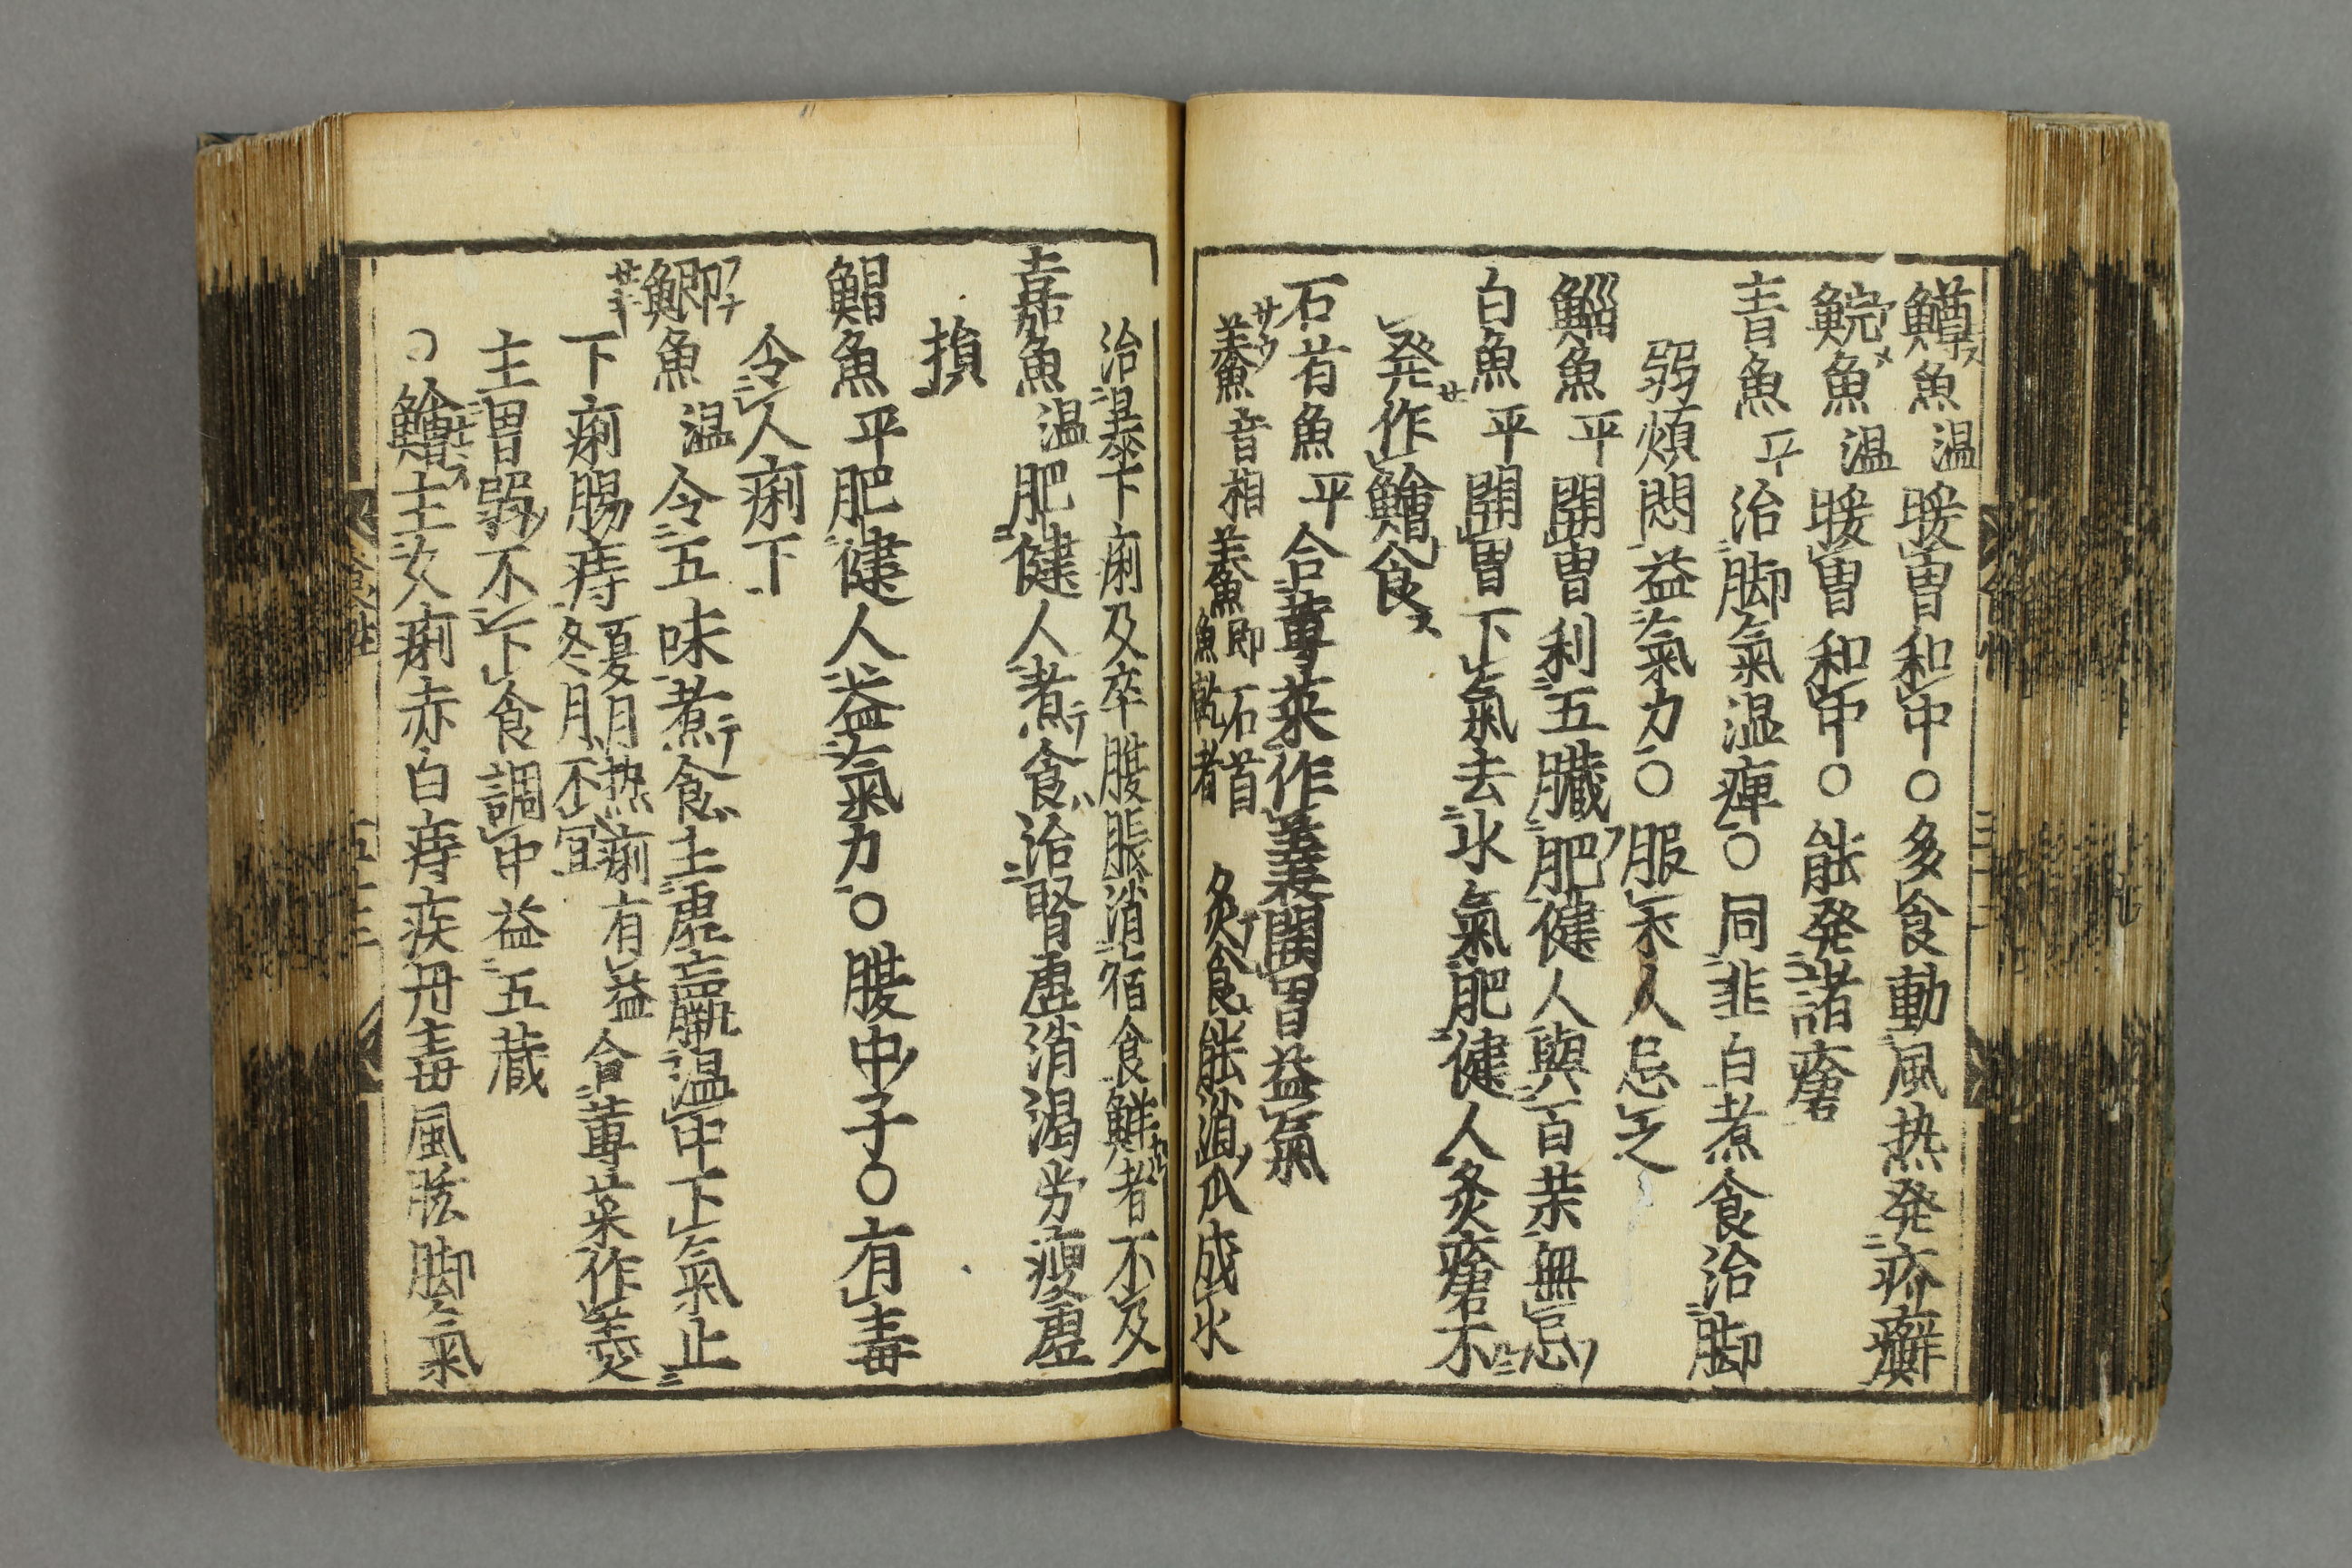 鱒魚温暖胃和中○多食動風热発疥癬
鯇魚温暖胃和中○能発諸瘡
青魚平治脚氣温痺○同韮白煮食治脚
弱煩悶益氣力○服朮人忌之
鯔魚平開胃利五臓肥健人與百薬無忌
白魚平開胃下氣去水氣肥健人炙瘡不
発作鱠食
石首魚平合蓴菜作羹開胃益氣
鯗音相鯗即石首魚乾者炙食能消瓜成水
治暴下痢及卒腹脹消宿食鮮者不及
嘉魚温肥健人煮食治腎虚消渇労瘦虚
損
鯧魚平肥健人益氣力○腹中子○有毒
令人痢下
鯽魚温令五味煮食主虚羸温中下氣止
下痢腸痔夏月热痢有益冬月不宜合蓴菜作羹
主胃弱不下食調中益五蔵
○鱠主久痢赤白痔疾丹毒風眩脚氣